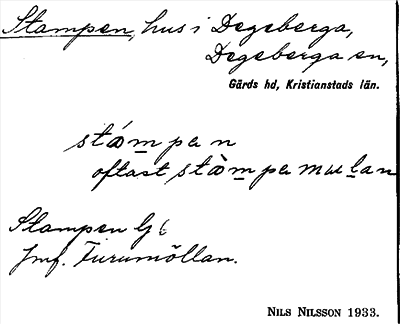 Stampen, hus i Degeberga,
Degeberga sn,
Gärds hd, Kristianstads län.
stámpen
oftast stàmpemulan
Stampen G 6
Jmf. Furumöllan.
NILS NILSSON 1933.